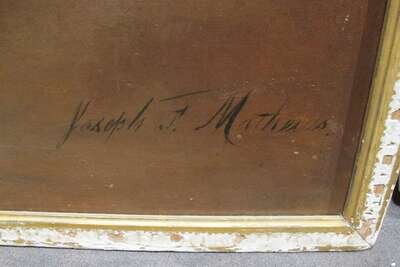 Joseph F. Mathews.